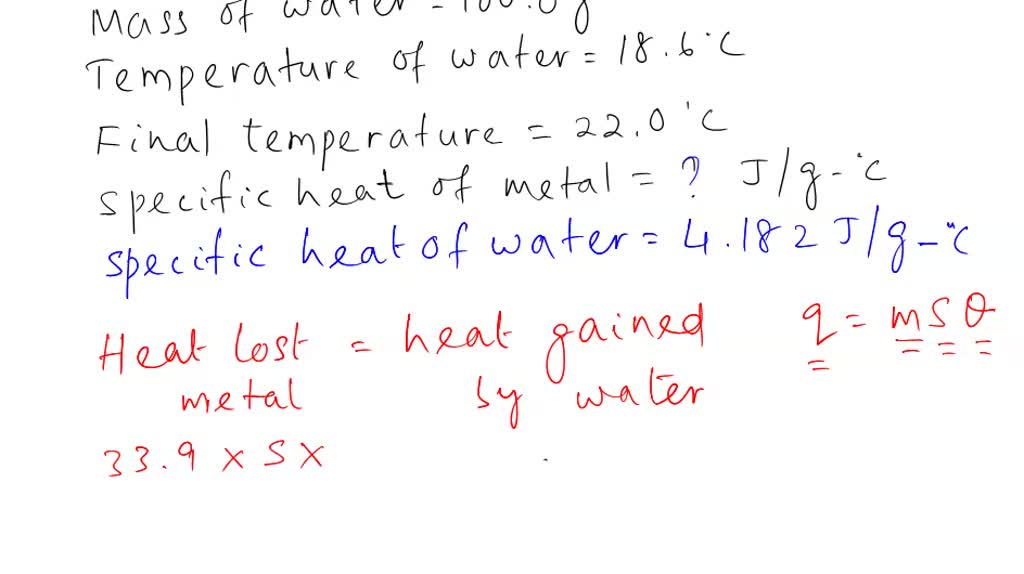 Mass of water = 100.0 g
Temperature of water = 18.6°C
Final temperature = 22.0 °C
specific heat of metal = ? J/g-°C
specific heat of water = 4.182 J/g-°C
Heat lost = heat gained q = msθ
metal by water
33.9 x s x